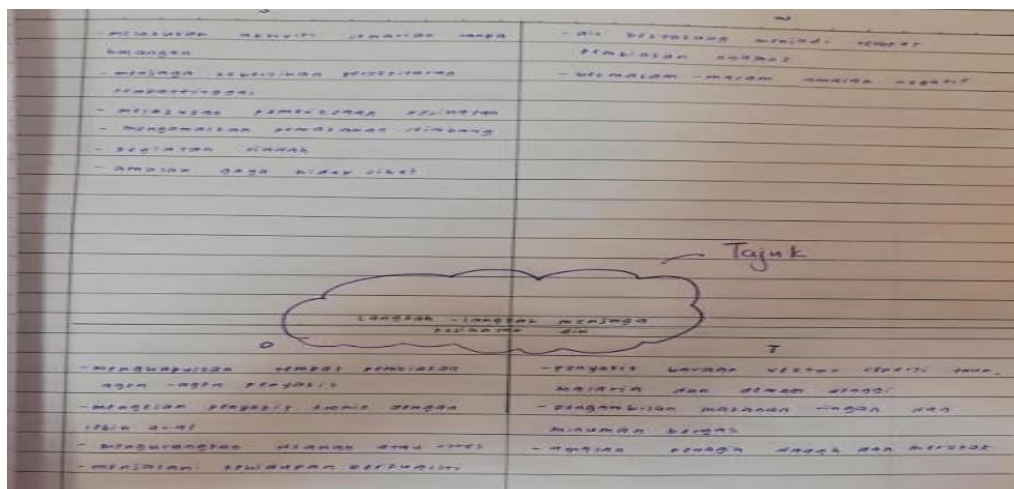 S
W
- melakukan aktiviti semarian tanpa
halangan
- menjaga kebersihan persekitaran
tempat tinggal
- melakukan pemeriksaan kesihatan
- mengamalkan pemakanan seimbang
- kegiatan riadah
- amalan gaya hidup sihat
- air bertakung menjadi tempat
pembiakan nyamuk
- bermacam-macam amalan negatif
Tajuk
Langkah-langkah menjaga
kesihatan diri
O
T
- menghapuskan tempat pembiakan
agen-agen penyakit
- mengesan penyakit kronik dengan
lebih awal
- mengurangkan tekanan atau stres
- menjalani kehidupan berkualiti
- penyakit bawaan vektor seperti
malaria dan demam denggi
- pengambilan makanan ringan dan
minuman bergas
- amalan dadah dan merokok